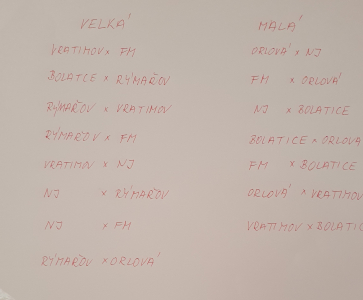 VELKÁ
VRATIMOV x FM
BOLATCE x RÝMAŘOV
RÝMAŘOV x VRATIMOV
RÝMAŘOV x FM
VRATIMOV x NJ
NJ x RÝMAŘOV
NJ x FM
RÝMAŘOV x ORLOVÁ
MALÁ
ORLOVÁ x NJ
FM x ORLOVÁ
NJ x BOLATICE
BOLATICE x ORLOVÁ
FM x BOLATICE
ORLOVÁ x VRATIMOV
VRATIMOV x BOLATIC